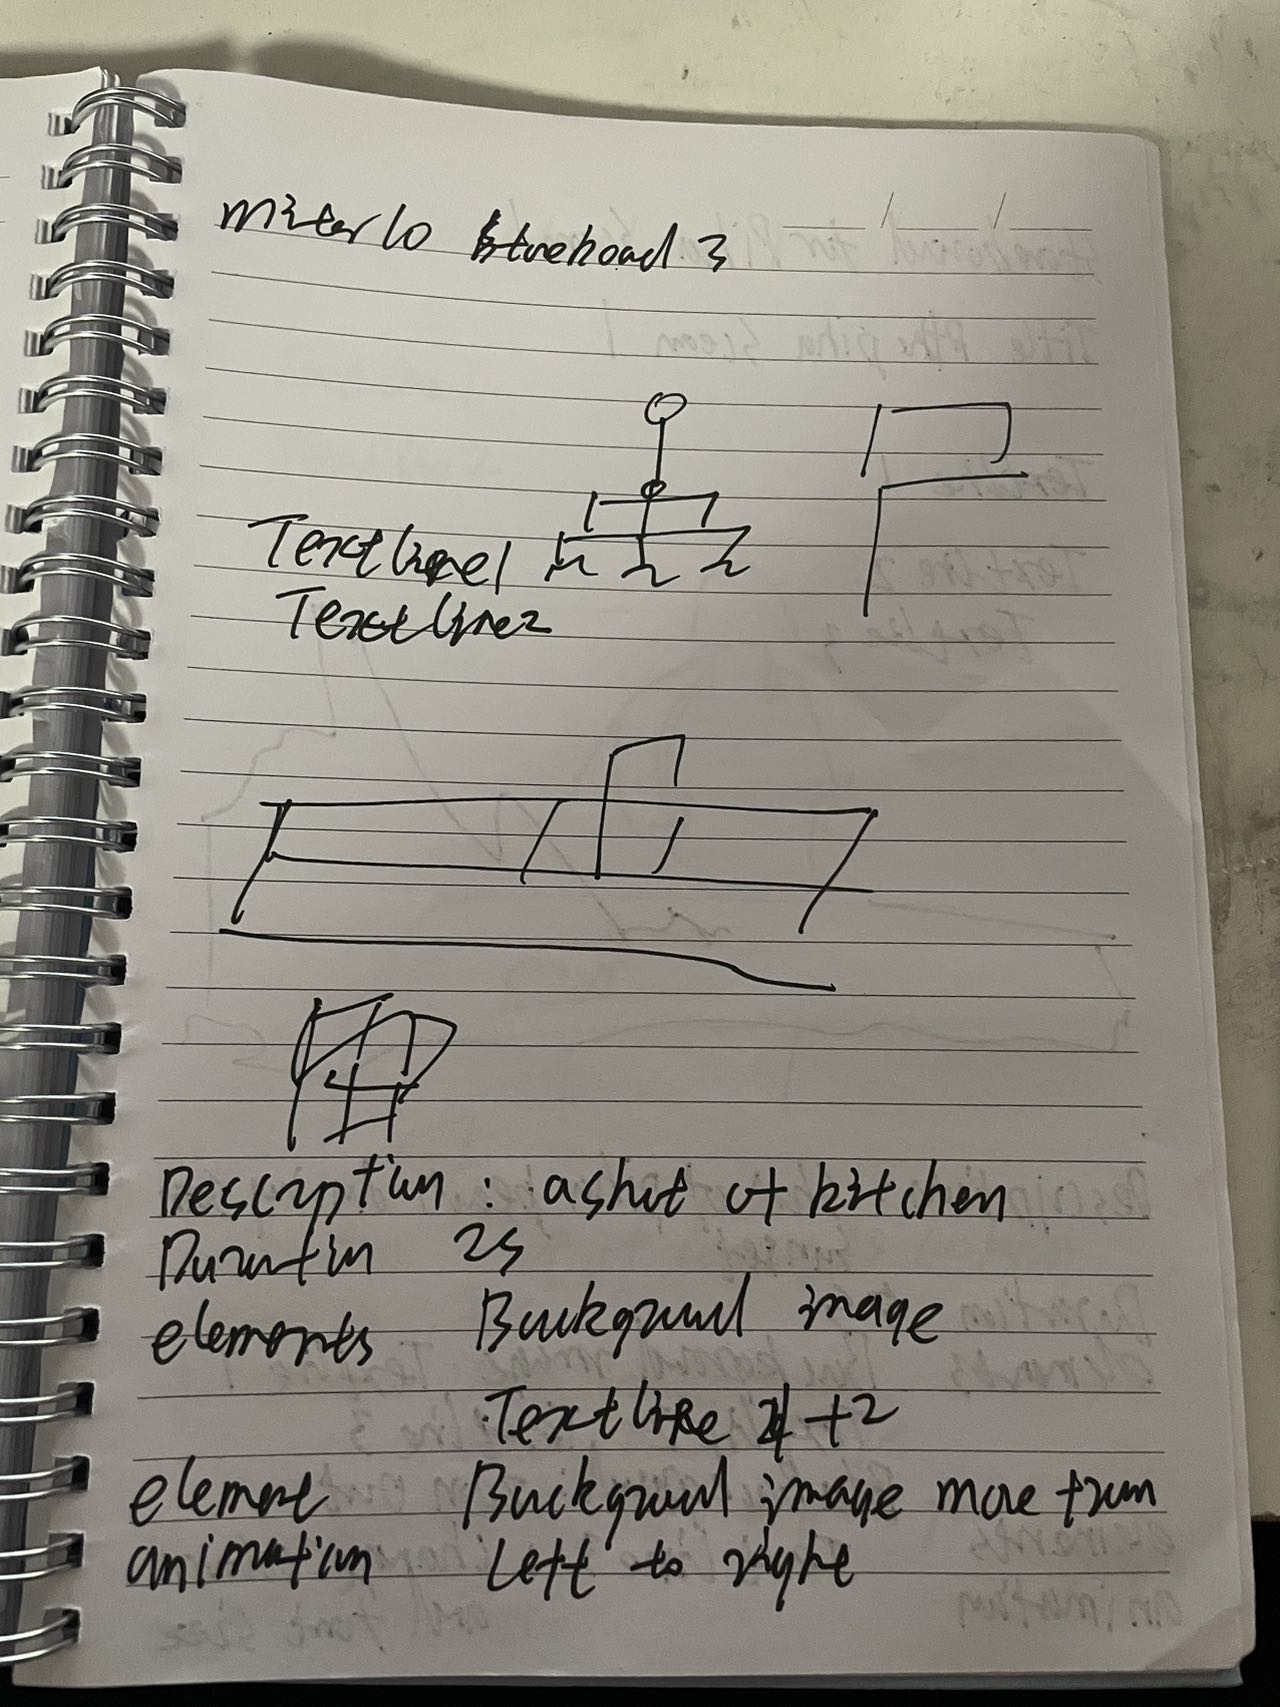 storeboard 3
Textline1
Textline2
Description : a shot of kitchen
Duration 2s
elements Background image
Textline 1 + 2
element Background image move from
animation Left to right